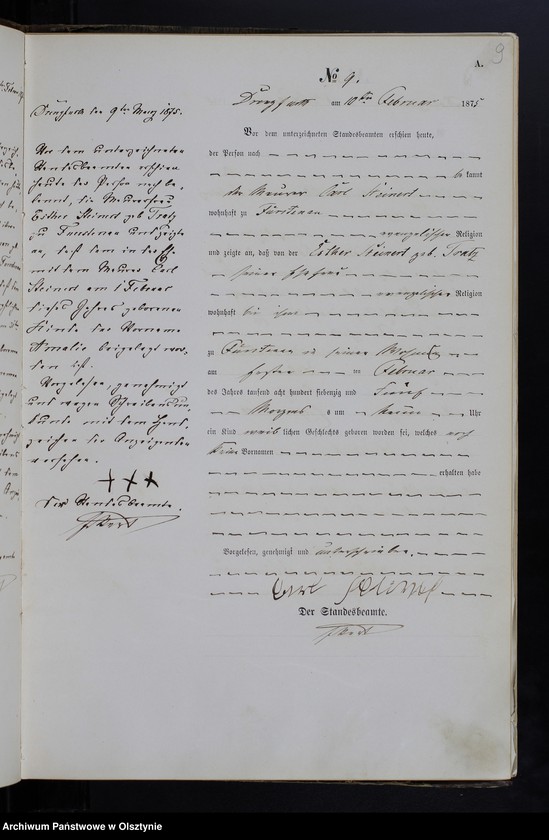 9
A.
№ 9.
am 10ten Februar 1875
Vor dem unterzeichneten Standesbeamten erschien heute,
der Person nach
be kannt
der Maurer Carl Steinert
wohnhaft zu Fürstenau
evangelischer Religion
und zeigte an, daß von der Esther Steinert geb. Tratz
seiner Ehefrau
evangelischer Religion
wohnhaft bei ihm
zu Fürstenau in seiner Wohnung
am ersten Februar
des Jahres tausend acht hundert siebenzig und Fünf
Morgens um neun Uhr
ein Kind weib lichen Geschlechts geboren worden sei, welches noch
keine Vornamen
erhalten habe
Vorgelesen, genehmigt und unterschrieben
Carl Steinert
Der Standesbeamte.
Drengfurth den 9ten Maerz 1875.
Vor dem unterzeichneten
Standesbeamten erschien
heute der Person nach be-
kannt, die Maurerfrau
Esther Steinert geb. Tratz
zu Fürstenau und zeigte
an, daß dem in der Ehe
mit dem Maurer Carl
Steinert am 1 Februar
dieses Jahres geborenen
Kinde der Vorname
Amalie beigelegt wor-
den ist.
Vorgelesen, genehmigt
und wegen Schreibensun-
kunde mit dem Hand-
zeichen der Anzeigenden
versehen.
+++
Der Standesbeamte.
Archiwum Państwowe w Olsztynie